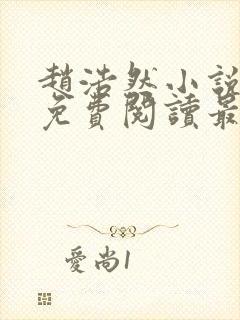 趙浩然小說
免費閱讀最
愛尚1